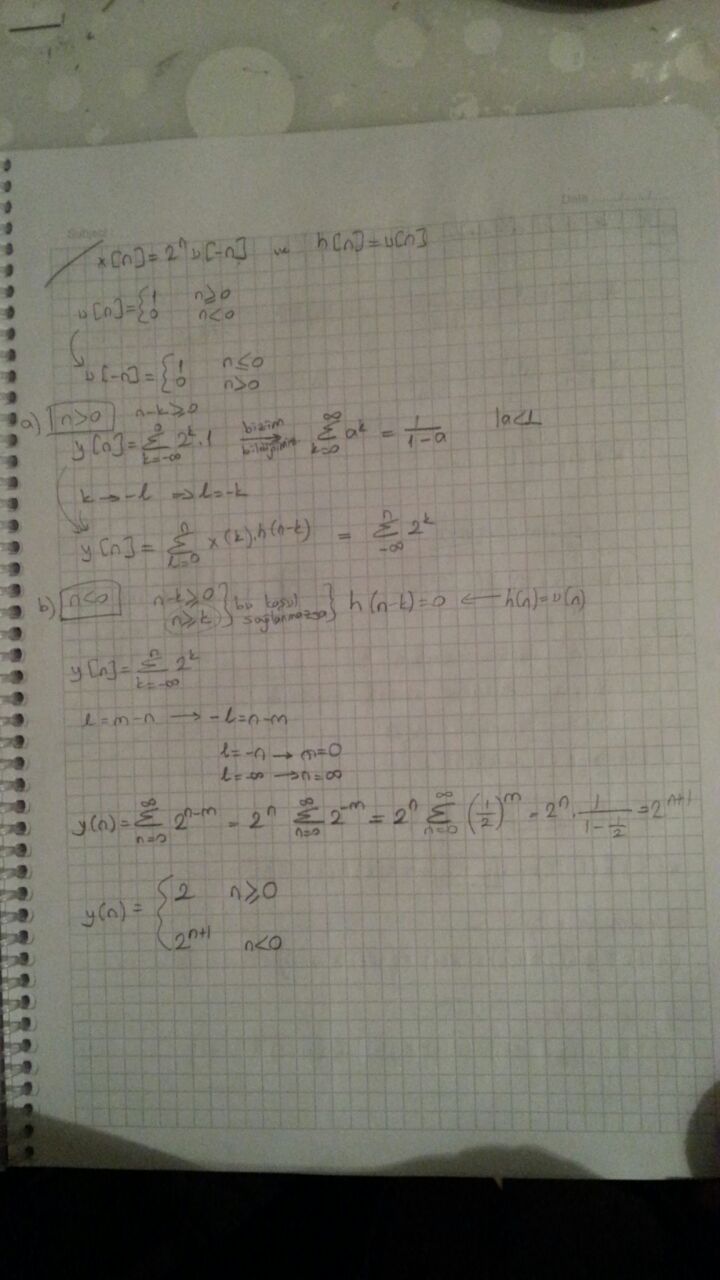 Subject Date
x[n]=2ⁿ u[-n] ve h[n]=u[n]
u[n]={1 n≥0
0 n<0
u[-n]={1 n≤0
0 n>0
a) n>0 n-k≥0
y[n]=∑_{k=-∞}^{0} 2^k.1 bizim ∑_{k=0}^{∞} a^k = 1/(1-a) |a<1
k→-l ⇒l=-k
y[n]= ∑_{l=0}^{n} x(k).h(n-k) = ∑_{-∞}^{n} 2^k
b) n<0 n-k≥0 } bu koşul } h(n-k)=0 ← h(n)=u(n)
n≥k } sağlanmazsa
y[n]=∑_{k=-∞}^{n} 2^k
l=m-n → -l=n-m
l=-n → m=0
l=-∞ →n=∞
y(n)=∑_{n=0}^{∞} 2^{n-m} = 2ⁿ ∑_{n=0}^{∞} 2^{-m} = 2ⁿ ∑_{n=0}^{∞} (1/2)^m = 2ⁿ. 1/(1-1/2) =2^{n+1}
y(n)= {2 n≥0
2^{n+1} n<0